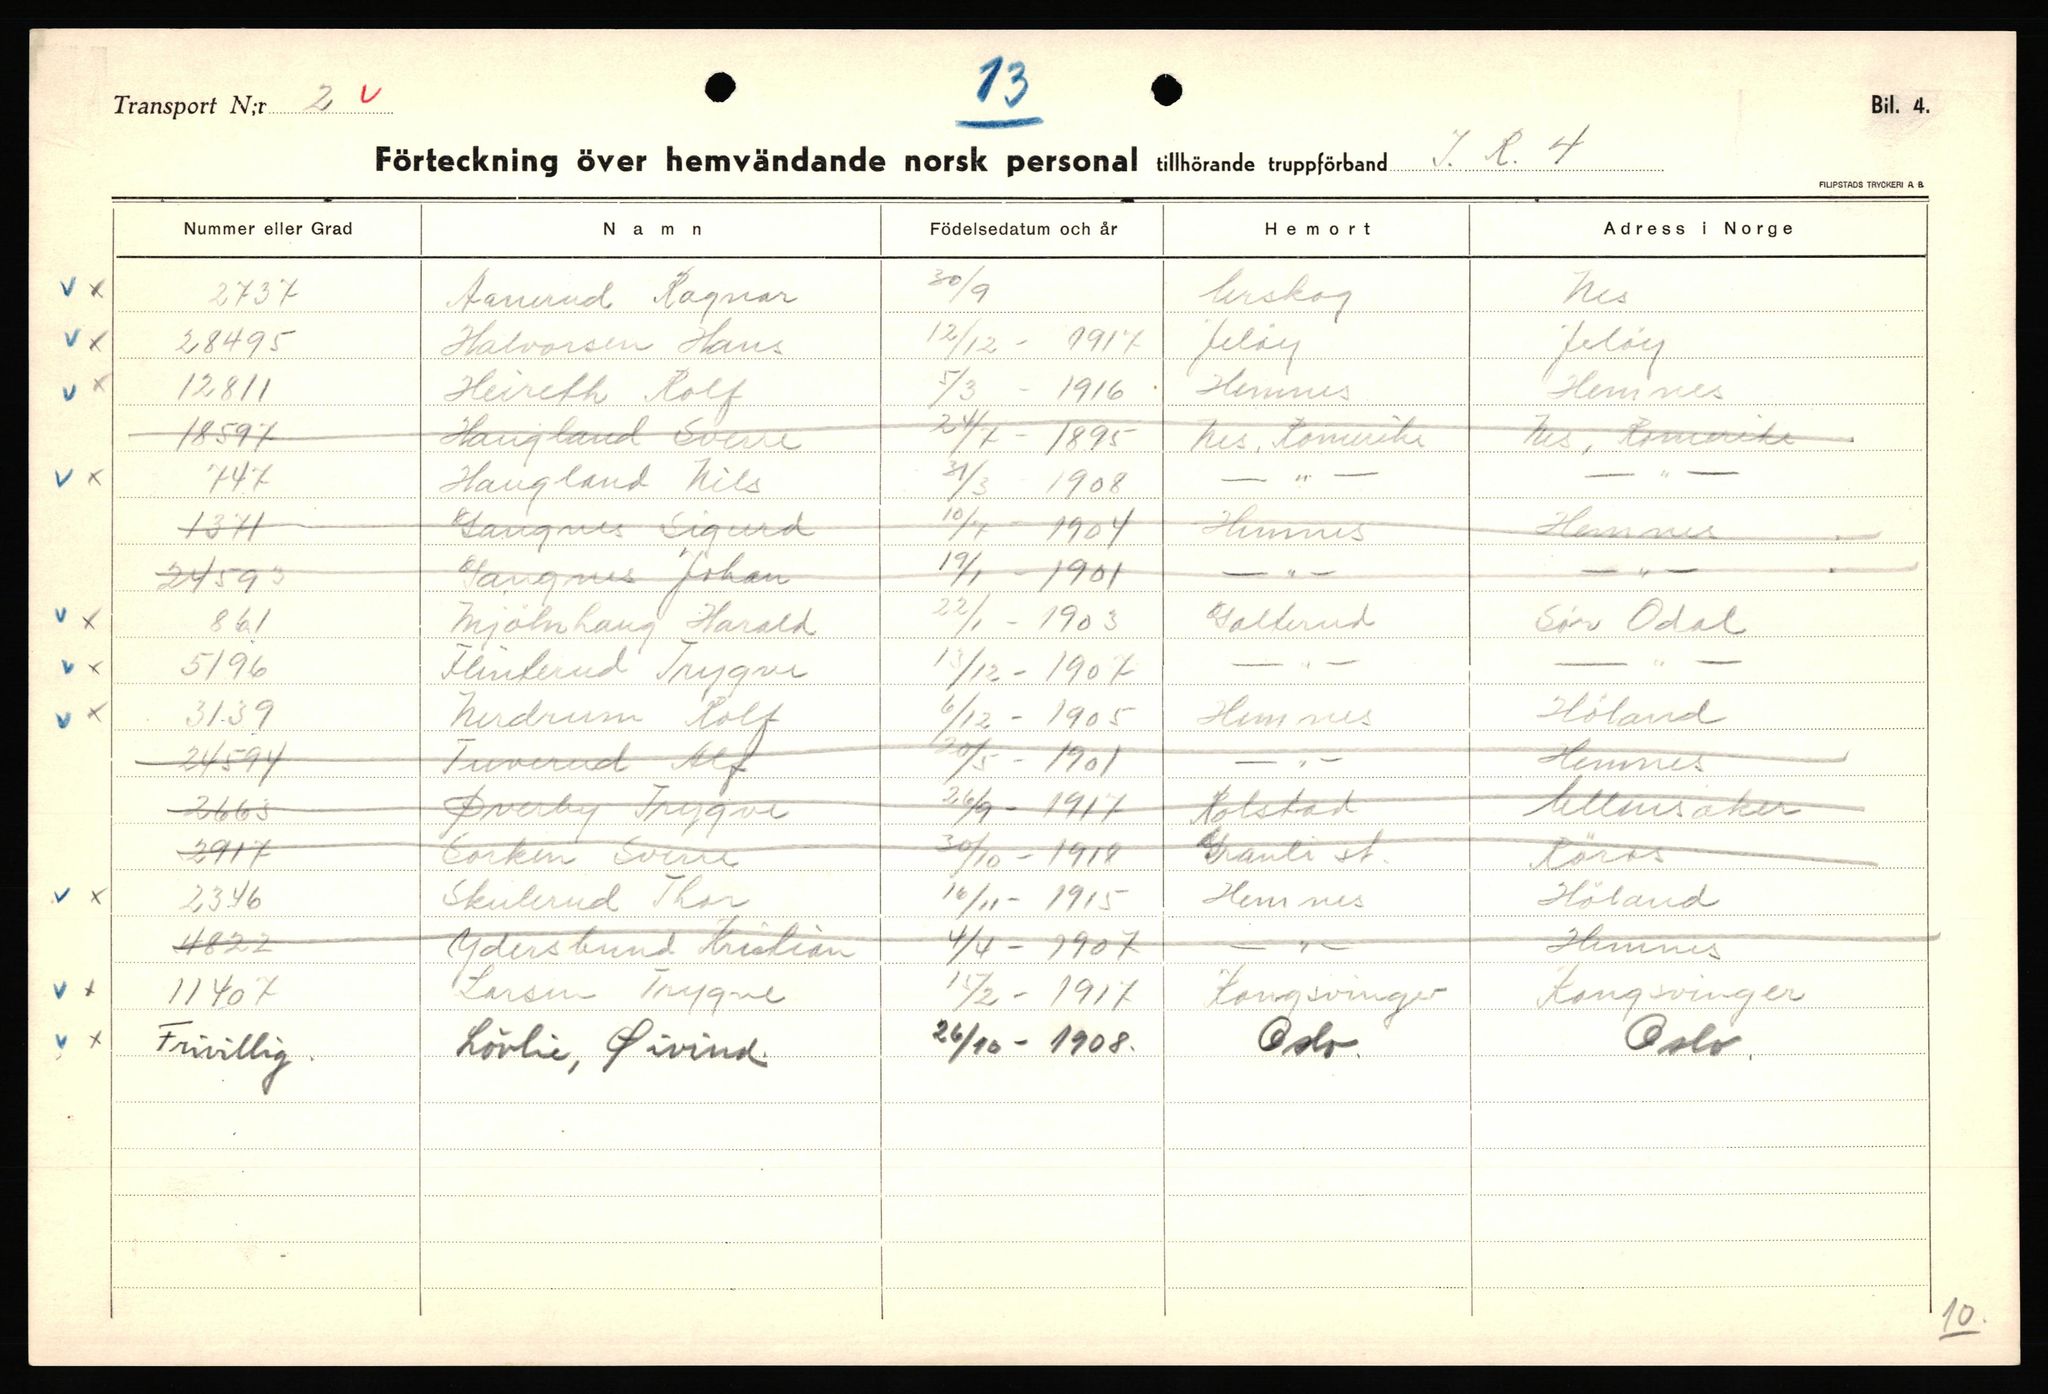 13
Transport N;r 2 v
Bil. 4.
Förteckning över hemvändande norsk personal tillhörande truppförband I. R. 4
FILIPSTADS TRYCKERI A. B.
Nummer eller Grad Namn Födelsedatum och år Hemort Adress i Norge
v x 2737 Aanerud Ragnar 30/9 Urskog Nes
v x 28495 Halvorsen Hans 12/12 - 1917 Jelöy Jelöy
v x 12811 Heireth Rolf 5/3 - 1916 Hemnes Hemnes
18597 Haugland Sverre 24/7 - 1895 Nes, Romerike Nes, Romerike
v x 747 Haugland Nils 31/3 1908 — " — — " —
1371 Gangnes Sigurd 10/7 - 1904 Hemnes Hemnes
24593 Gangnes Johan 19/1 - 1901 — " — — " —
v x 861 Mjölnhaug Harald 22/1 - 1903 Galterud Sör Odal
v x 5196 Flinterud Trygve 13/12 - 1907 — " — — " —
v x 3139 Nerdrum Rolf 6/12 - 1905 Hemnes Höland
24594 Tuverud Alf 20/5 - 1901 — " — Hemnes
2663 Øverby Trygve 26/9 - 1917 Rolstad Ullensaker
2917 Sverre 30/10 - 1918 st. Röros
v x 2346 Skulerud Thor 16/11 - 1915 Hemnes Höland
4822 Ydersbund Kristian 4/4 - 1907 — " — Hemnes
v x 11407 Larsen Trygve 15/2 - 1917 Kongsvinger Kongsvinger
v x Frivillig. Lövlie, Øivind. 26/10 - 1908. Oslo. Oslo.
10.